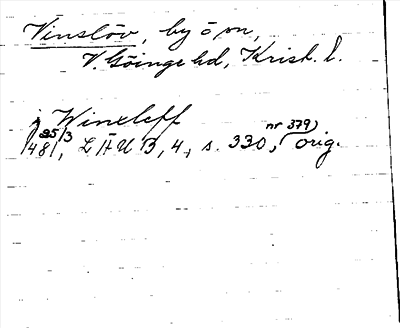 Vinslöv, by ö sn,
V. Göinge hd, Krish. l.
j Winxleff
1481 25/3, LÄUB, 4, s. 330, (nr 379) orig.